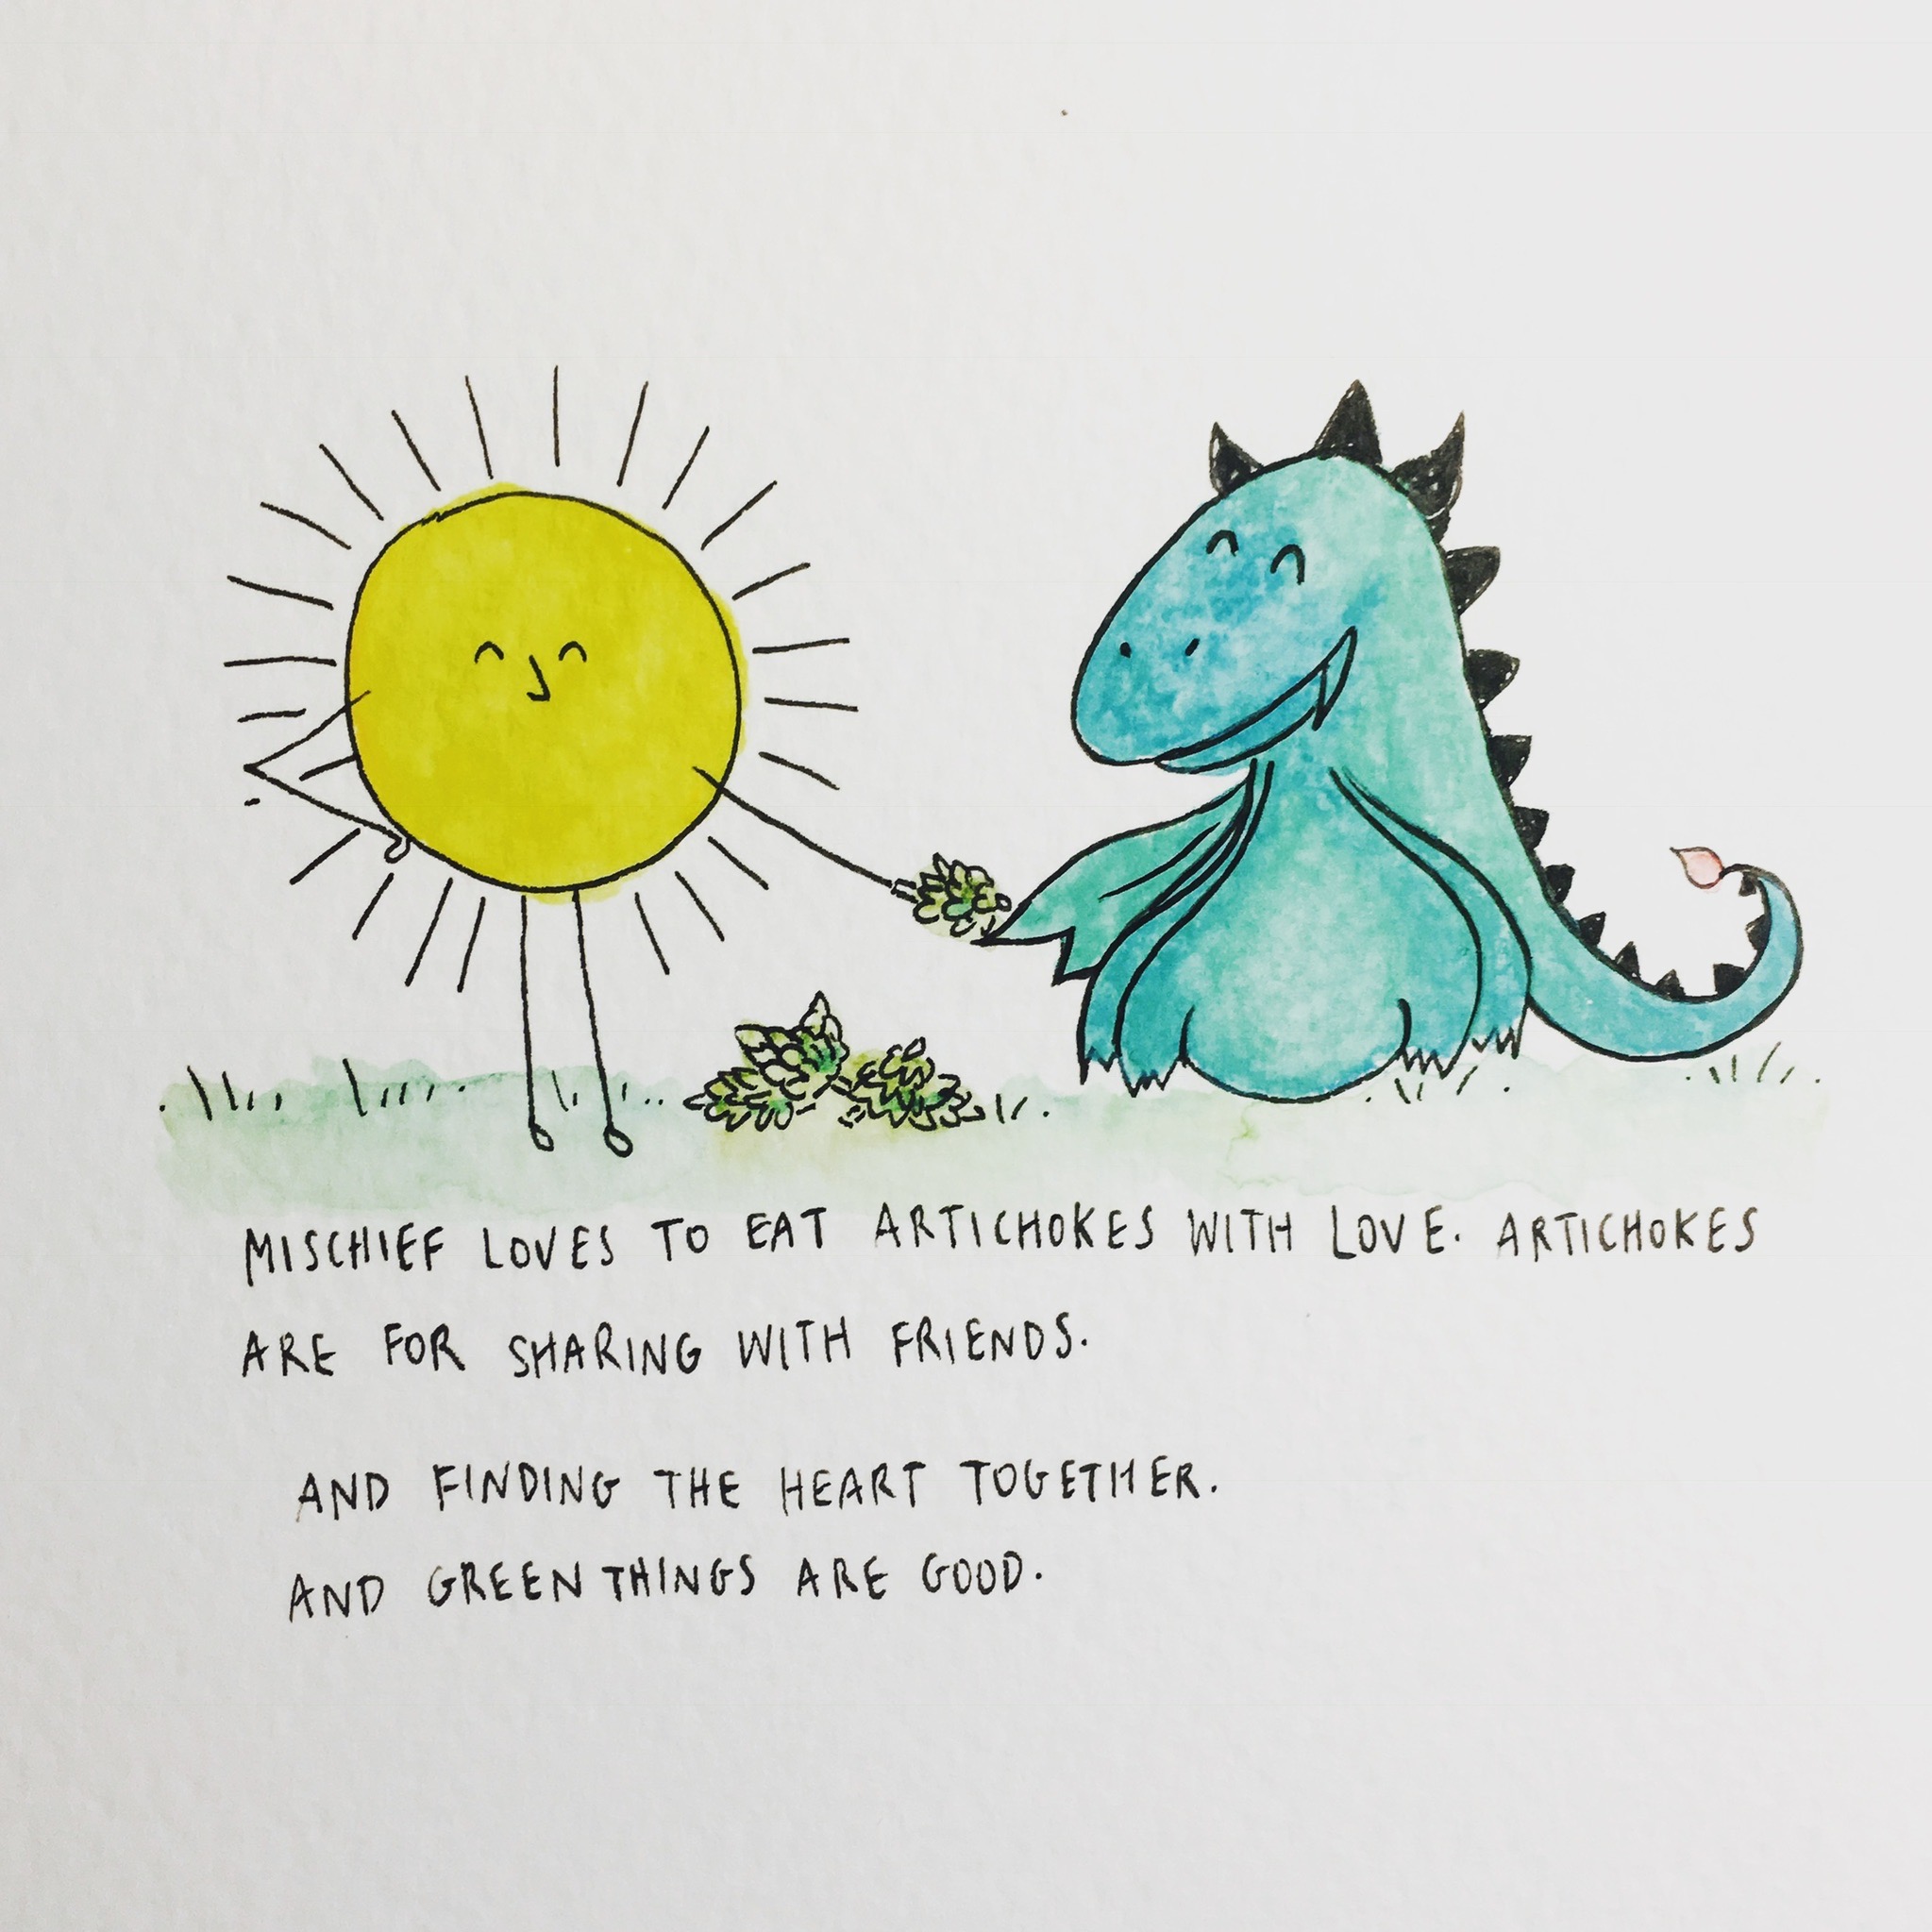 MISCHIEF LOVES TO EAT ARTICHOKES WITH LOVE. ARTICHOKES
ARE FOR SHARING WITH FRIENDS.
AND FINDING THE HEART TOGETHER.
AND GREEN THINGS ARE GOOD.